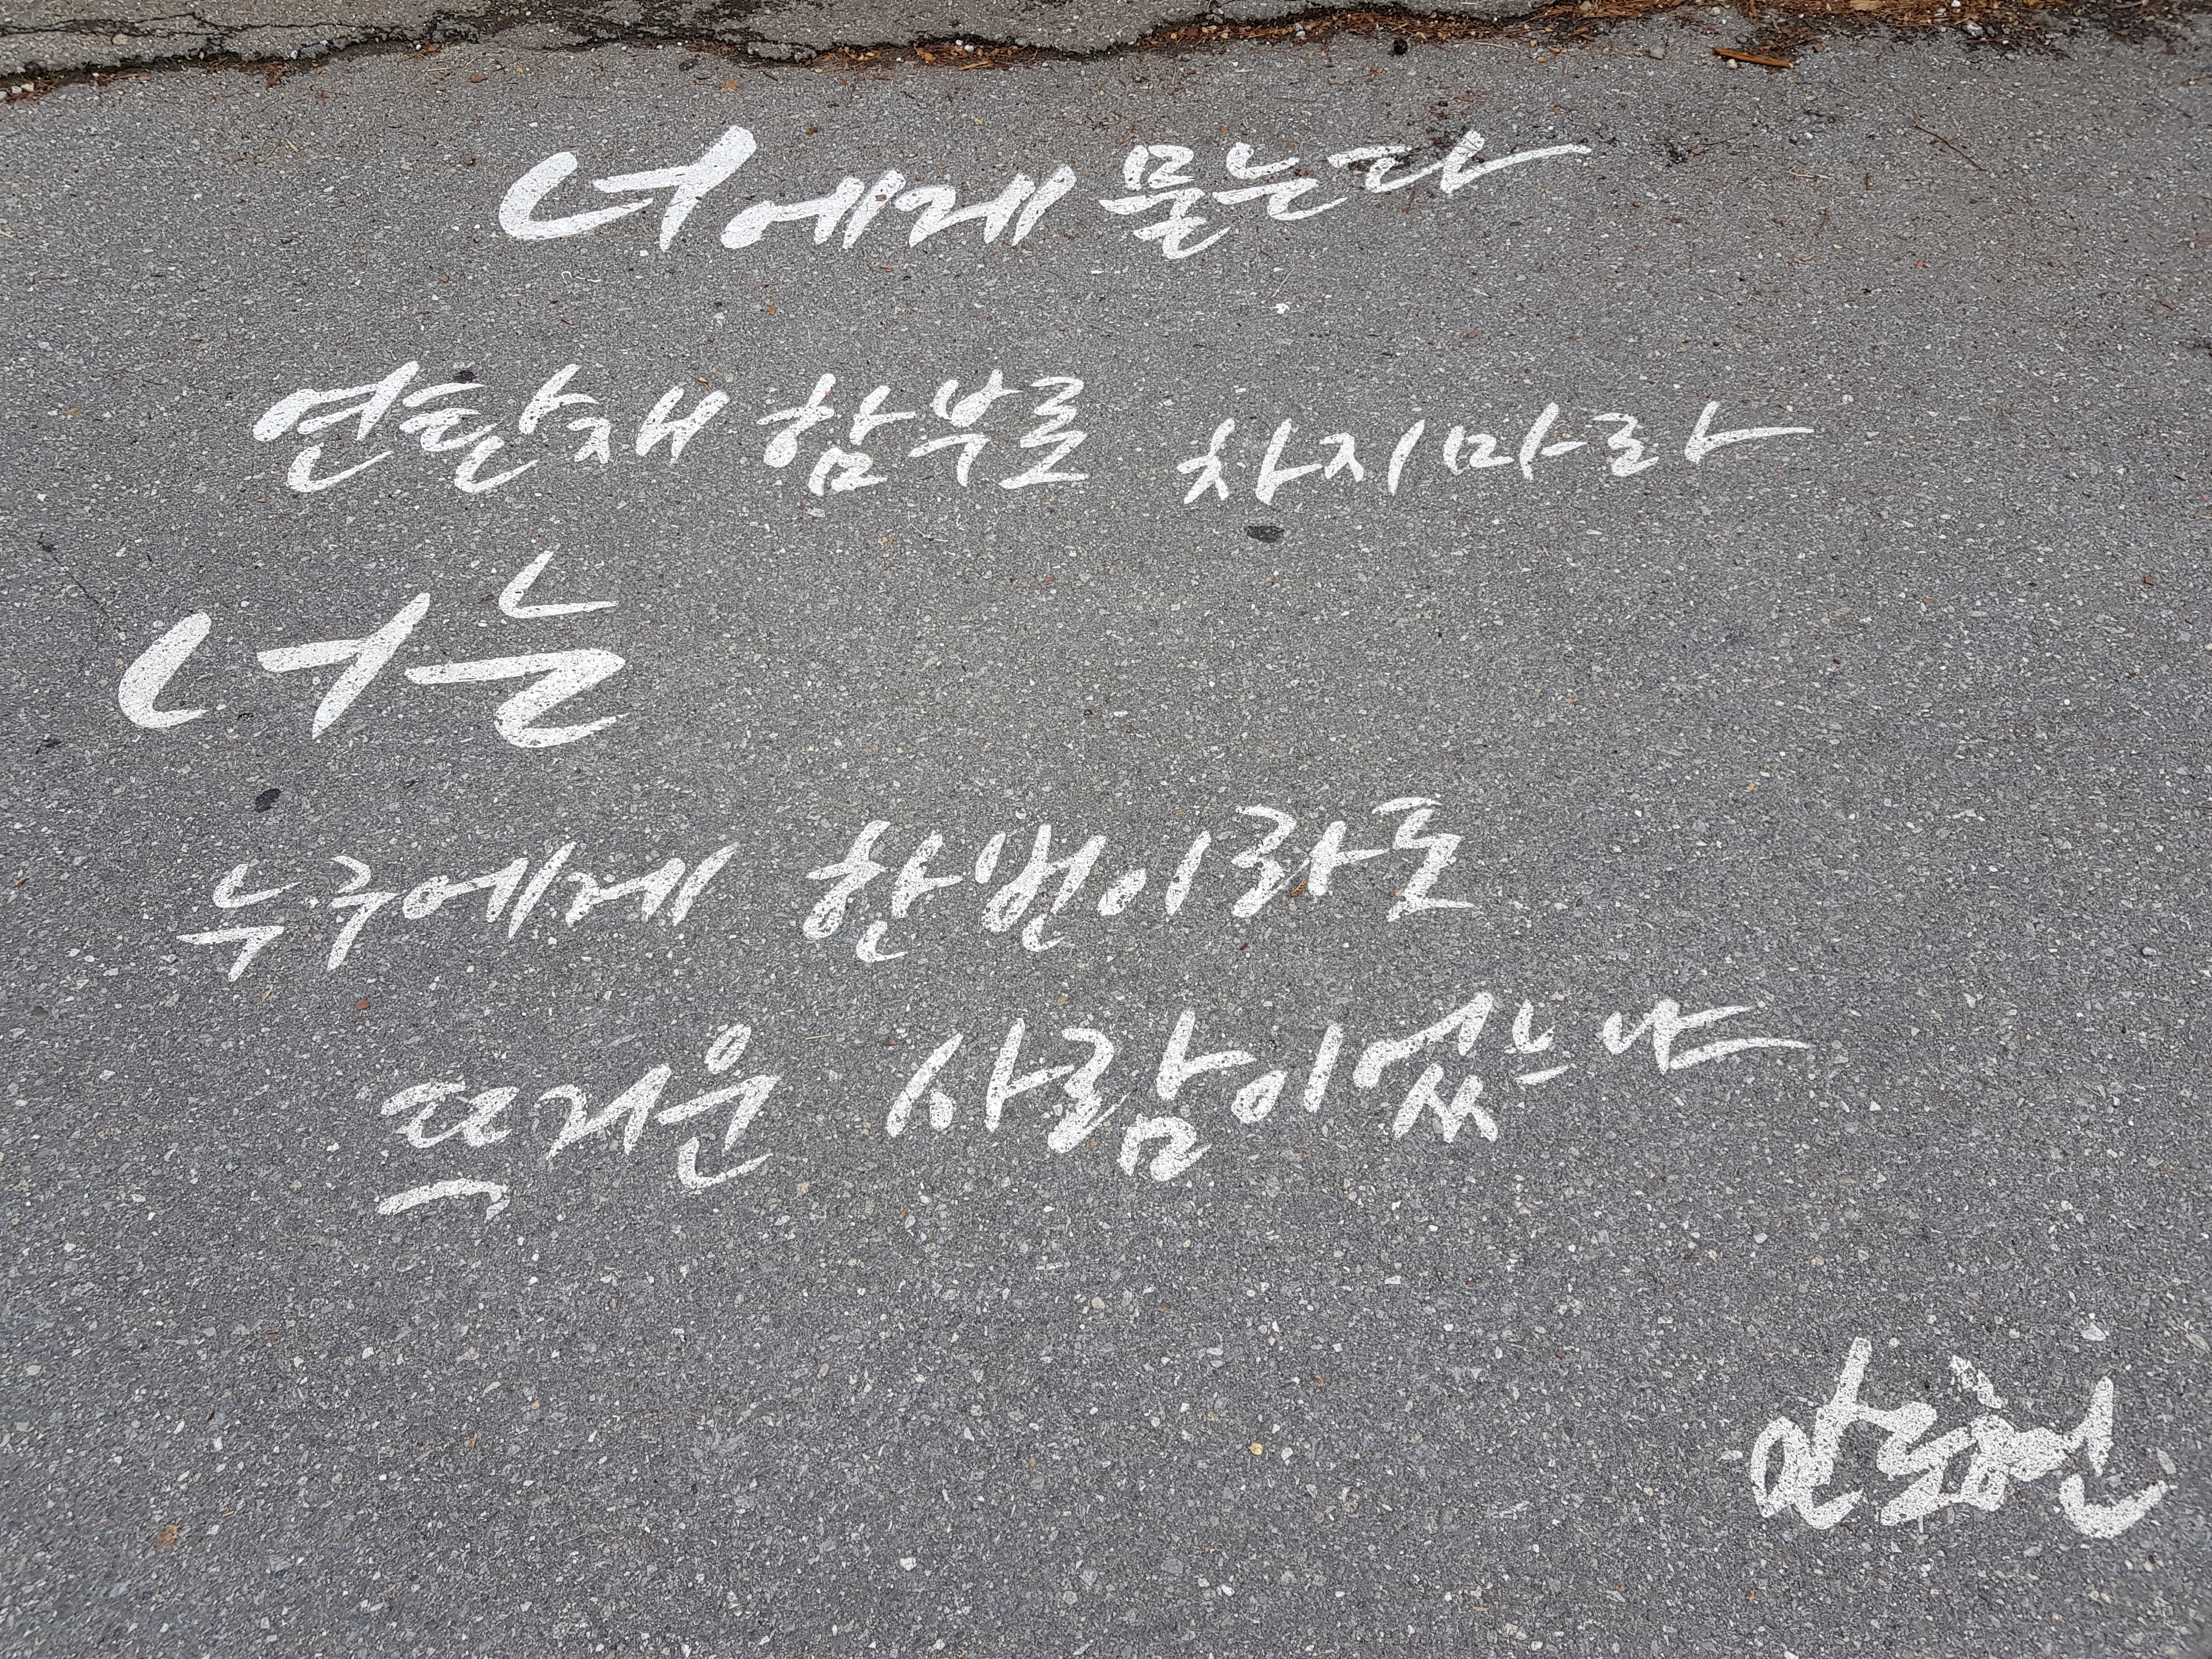 너에게 묻는다
연탄재 함부로 차지마라
너는
누구에게 한번이라도
뜨거운 사람이었느냐
안도현